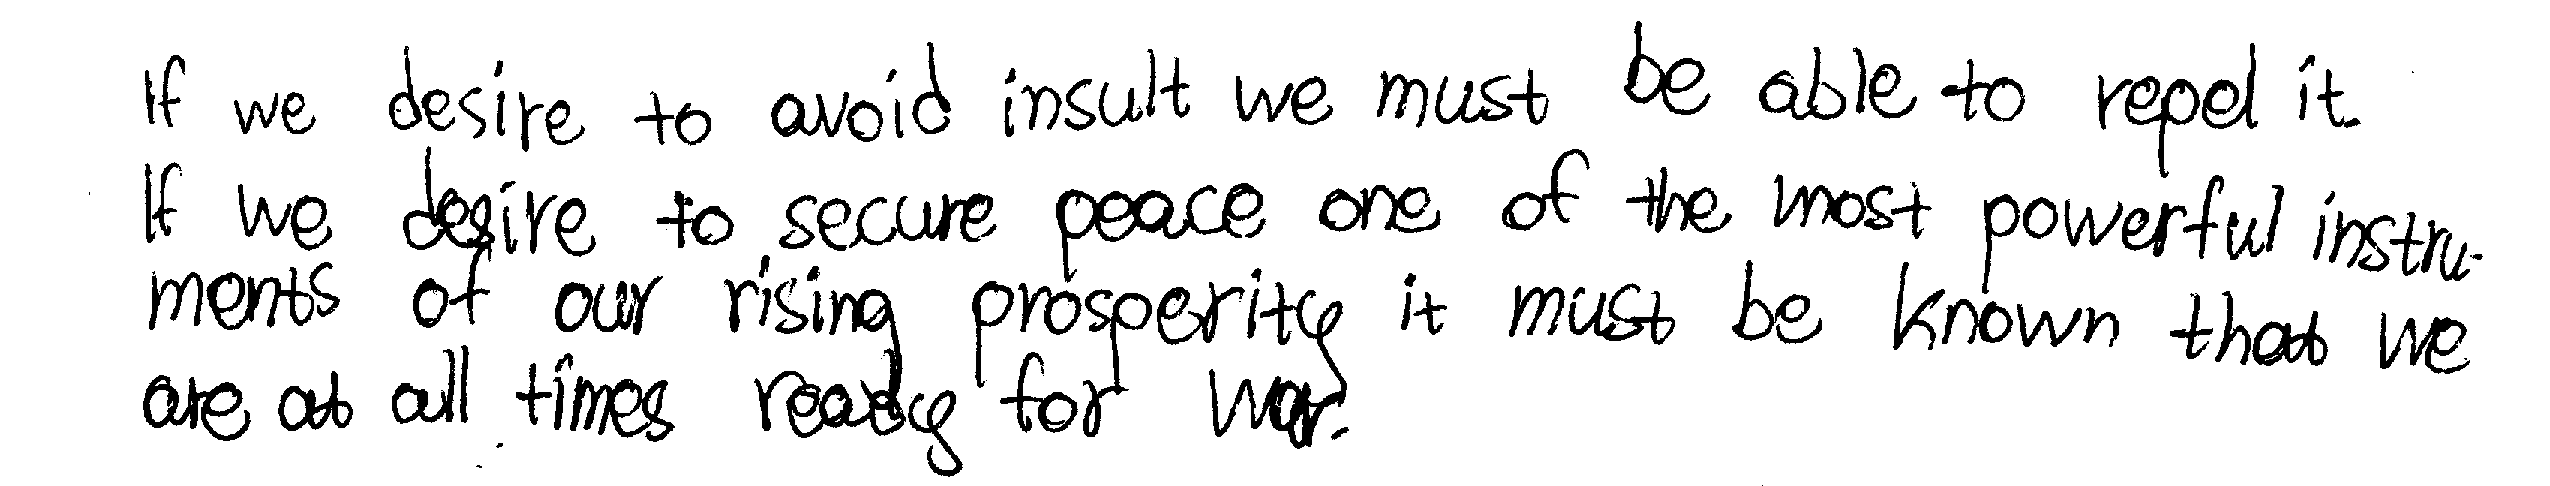 If we desire to avoid insult we must be able to repel it.
If we desire to secure peace one of the most powerful instru-
ments of our rising prosperity it must be known that we
are at all times ready for war.